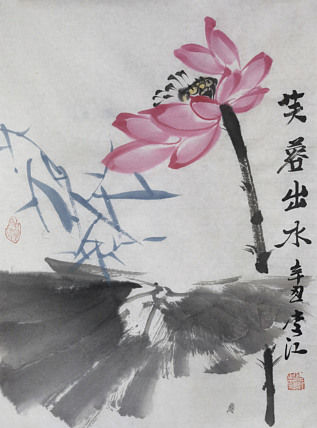 芙蓉出水
辛丑李江